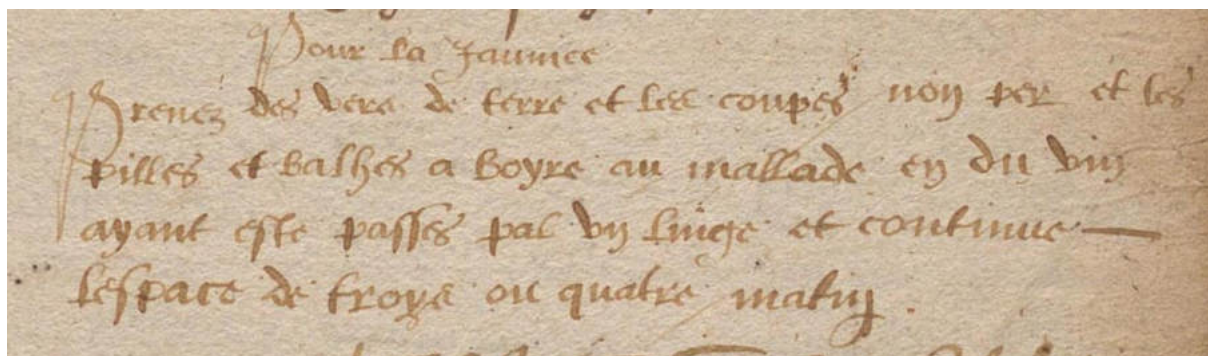 Pour la Jaunice
Prenez des vers de terre et les coupes non per et les
pilles et balhes a boyre au mallade en du vin
ayant este passes pal vn linge et continue
lespace de troys ou quatre matin